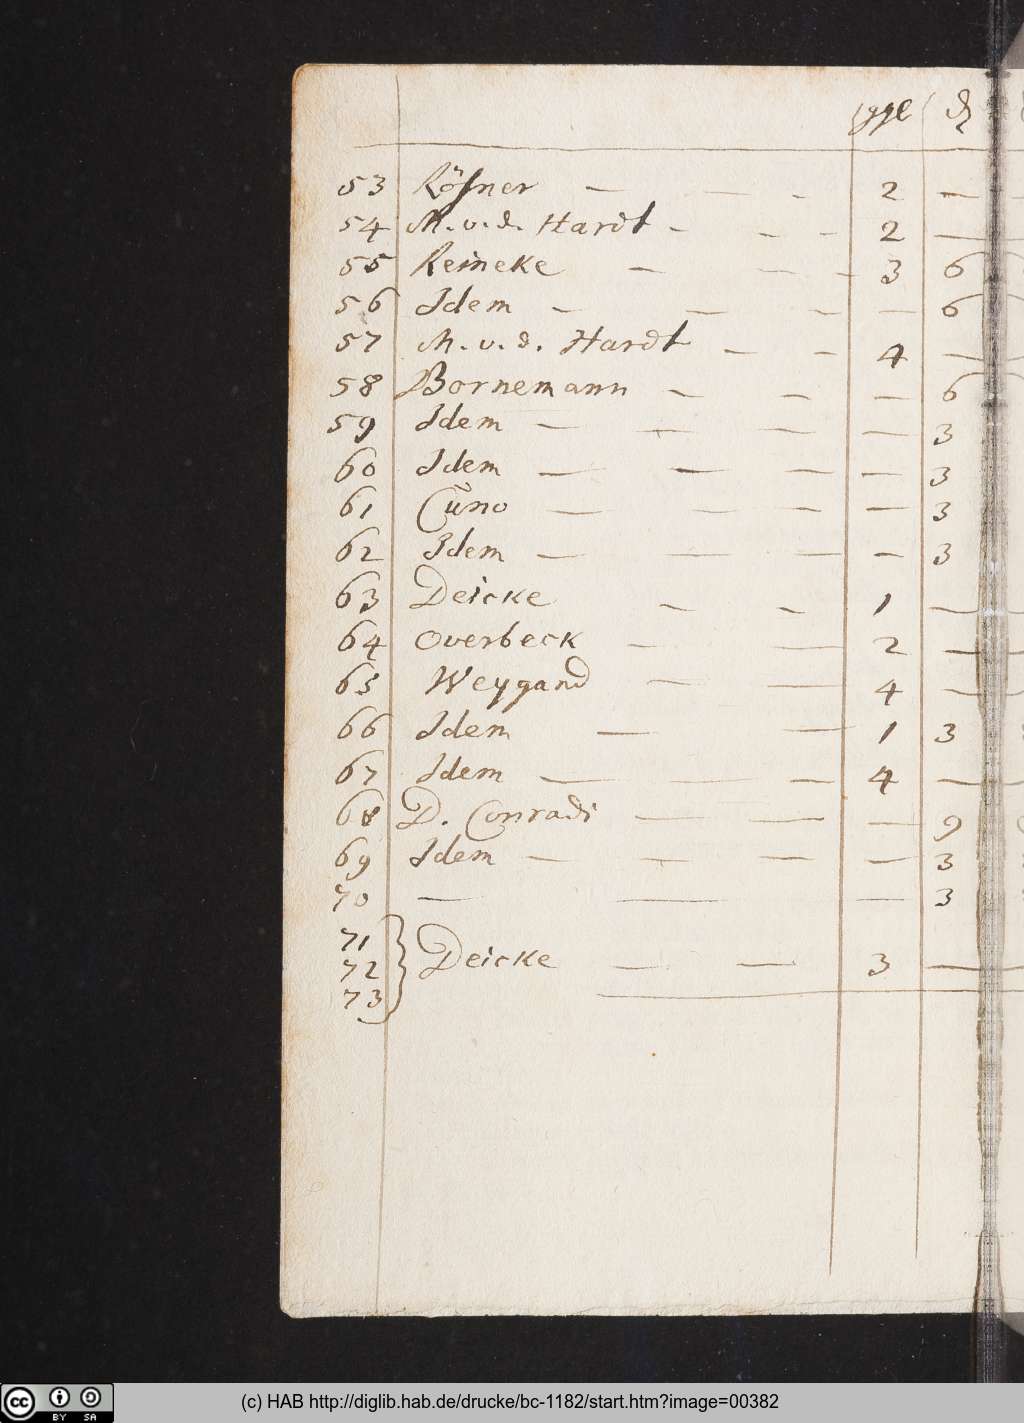 ggl ₰
53 Rößner — — - 2 —
54 M. v. d. Hardt - — - 2 —
55 Reineke — — - 3 6
56 Idem — — — — 6
57 M. v. d. Hardt — - 4 —
58 Bornemann — — — 6
59 Idem — — — — 3
60 Idem — — — — 3
61 Cŭno — — — — 3
62 Idem — — — — 3
63 Deicke — — 1 —
64 Overbeck — — 2 —
65 Weygand — — 4 —
66 Idem — — 1 3
67 Idem — — — 4 —
68 D. Conradi — — — 9
69 Idem — — — — 3
70 — — — 3
71
72 } Deicke — — 3 —
73
(c) HAB http://diglib.hab.de/drucke/bc-1182/start.htm?image=00382
CC BY SA